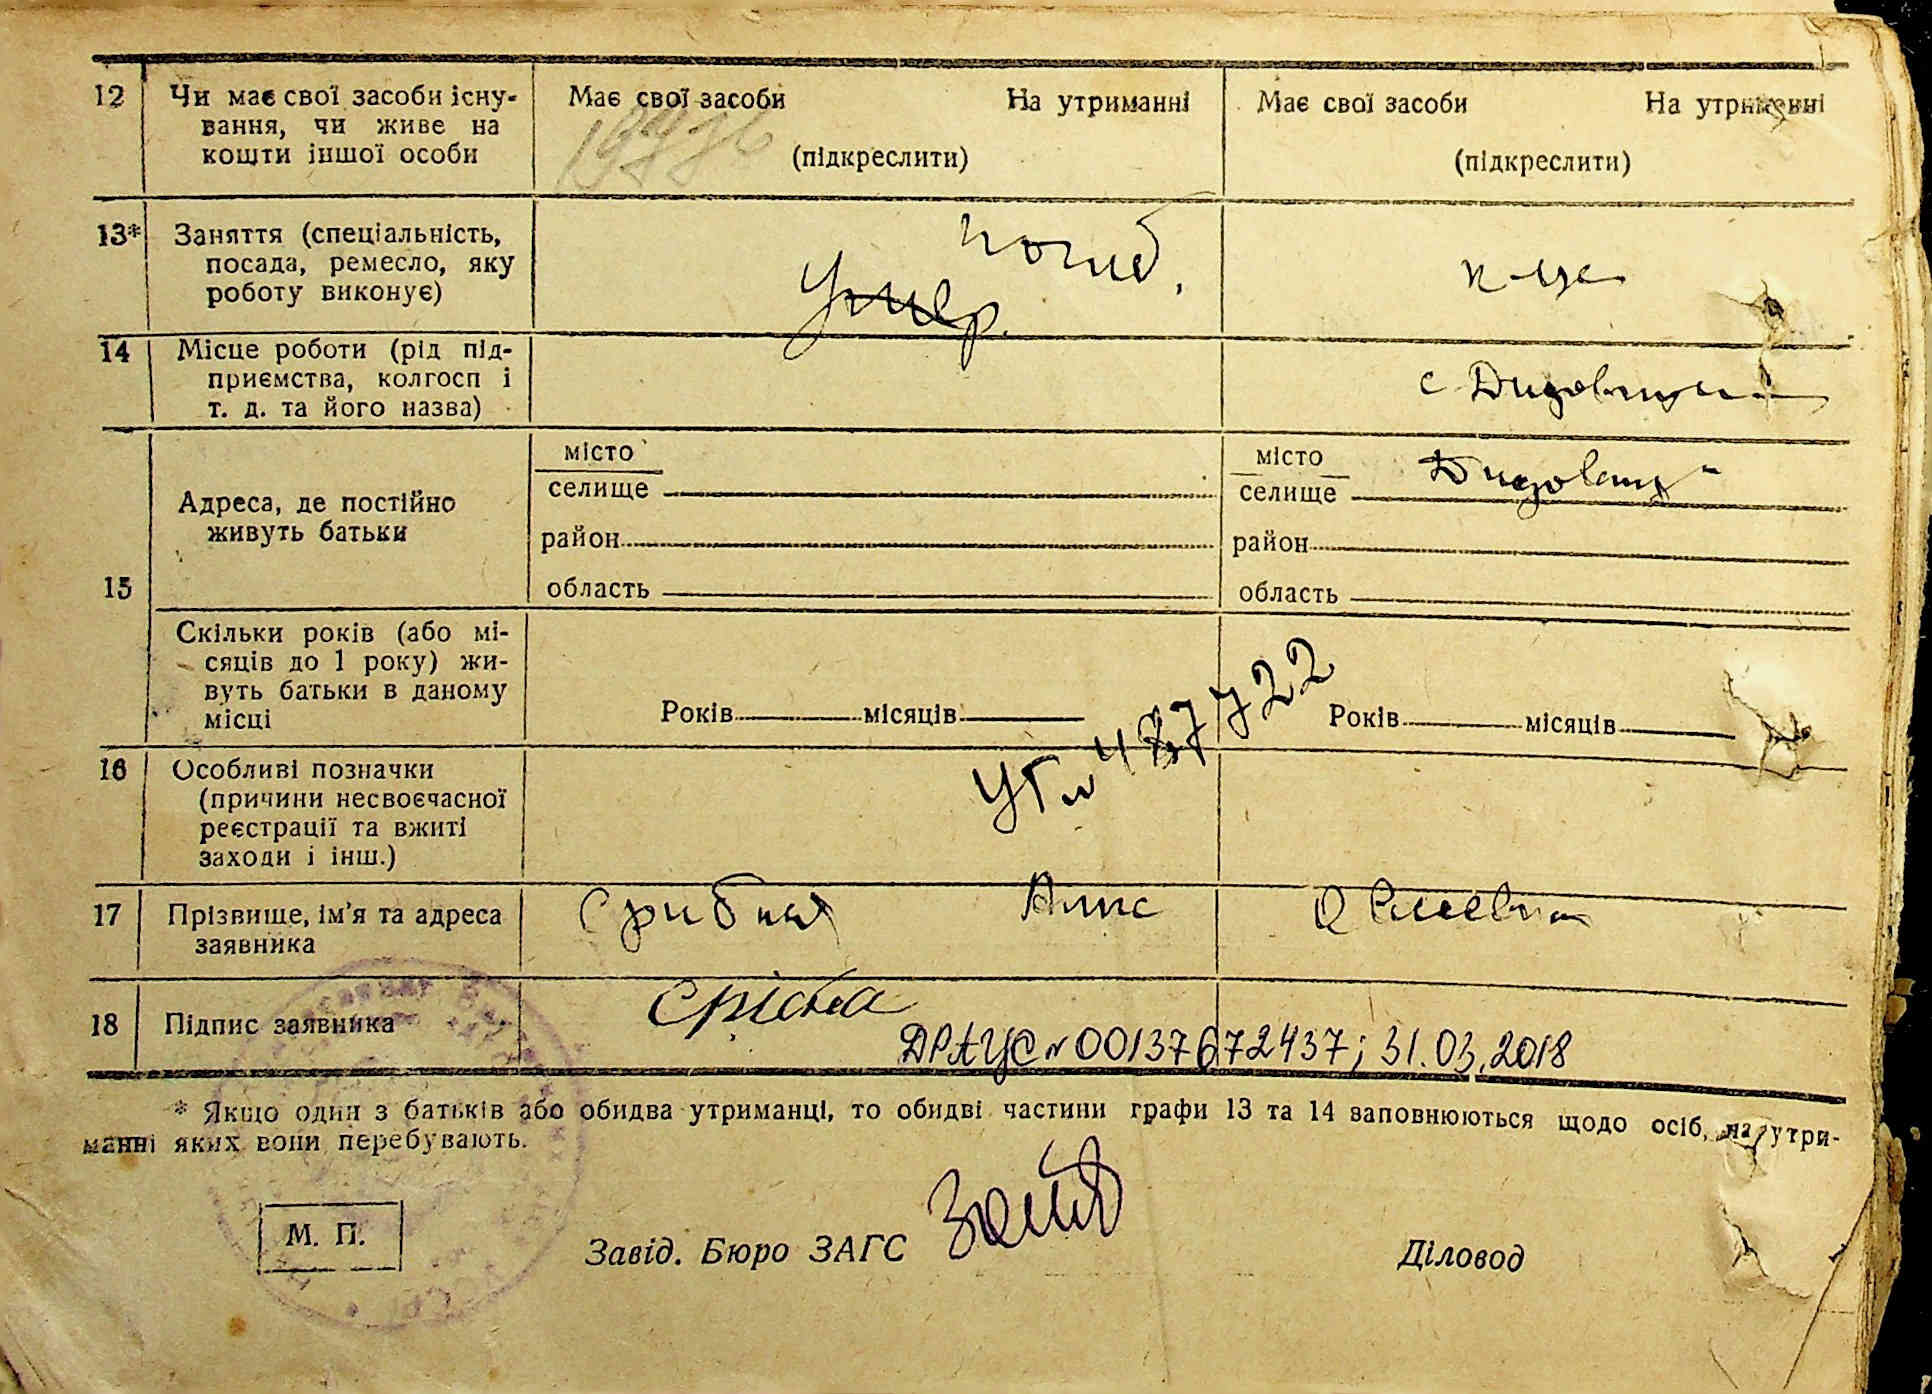 12 Чи має свої засоби існу-
вання, чи живе на
кошти іншої особи
Має свої засоби На утриманні
(підкреслити)
Має свої засоби На утриманні
(підкреслити)
13* Заняття (спеціальність,
посада, ремесло, яку
роботу виконує)
погиб.
Умер.
14 Місце роботи (рід під-
приємства, колгосп і
т. д. та його назва)
15 Адреса, де постійно
живуть батьки
місто
селище
район
область
місто
селище
район
область
Скільки років (або мі-
сяців до 1 року) жи-
вуть батьки в даному
місці
Років місяців
Років місяців
16 Особливі позначки
(причини несвоєчасної
реєстрації та вжиті
заходи і інш.)
УГ № 487722
17 Прізвище, ім'я та адреса
заявника
Срибная Анна
18 Підпис заявника
Срібна
ДРАЦС № 00137672437; 31.03.2018
* Якщо один з батьків або обидва утриманці, то обидві частини графи 13 та 14 заповнюються щодо осіб, на утри-
манні яких вони перебувають.
М. П.
Завід. Бюро ЗАГС
Діловод